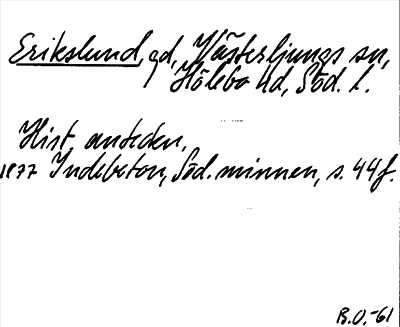 Erikslund, gd, Västerljungs sn,
Hölebo hd, Söd. l.
Hist. anteckn.
1877 Indebetou, Söd. minnen, s. 44 f.
B.O.-61